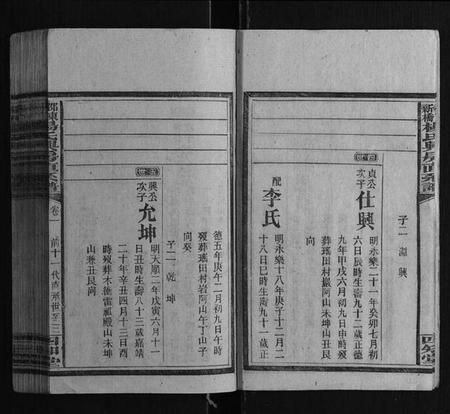 子二 淵 興
貞公次子 仕興 明永樂二十一年癸卯七月初
六日辰時生壽九十二歲正德
九年甲戌六月初九日申時歿
葬瑤田村巖阿山未坤山丑艮
向
配 李氏 明永樂十八年庚子十二月二
十八日巳時生壽九十一歲正
德五年庚午二月初九日午時
歿葬瑤田村岩阿山午丁山子
向癸
子二 乾 坤
興公次子 允坤 明天順二年戊寅六月十一
日丑時生壽八十三歲嘉靖
二十年辛丑四月十三日酉
時歿葬木德雷祖殿山未坤
山兼丑艮向
卷一 前十一代直系世
四知堂